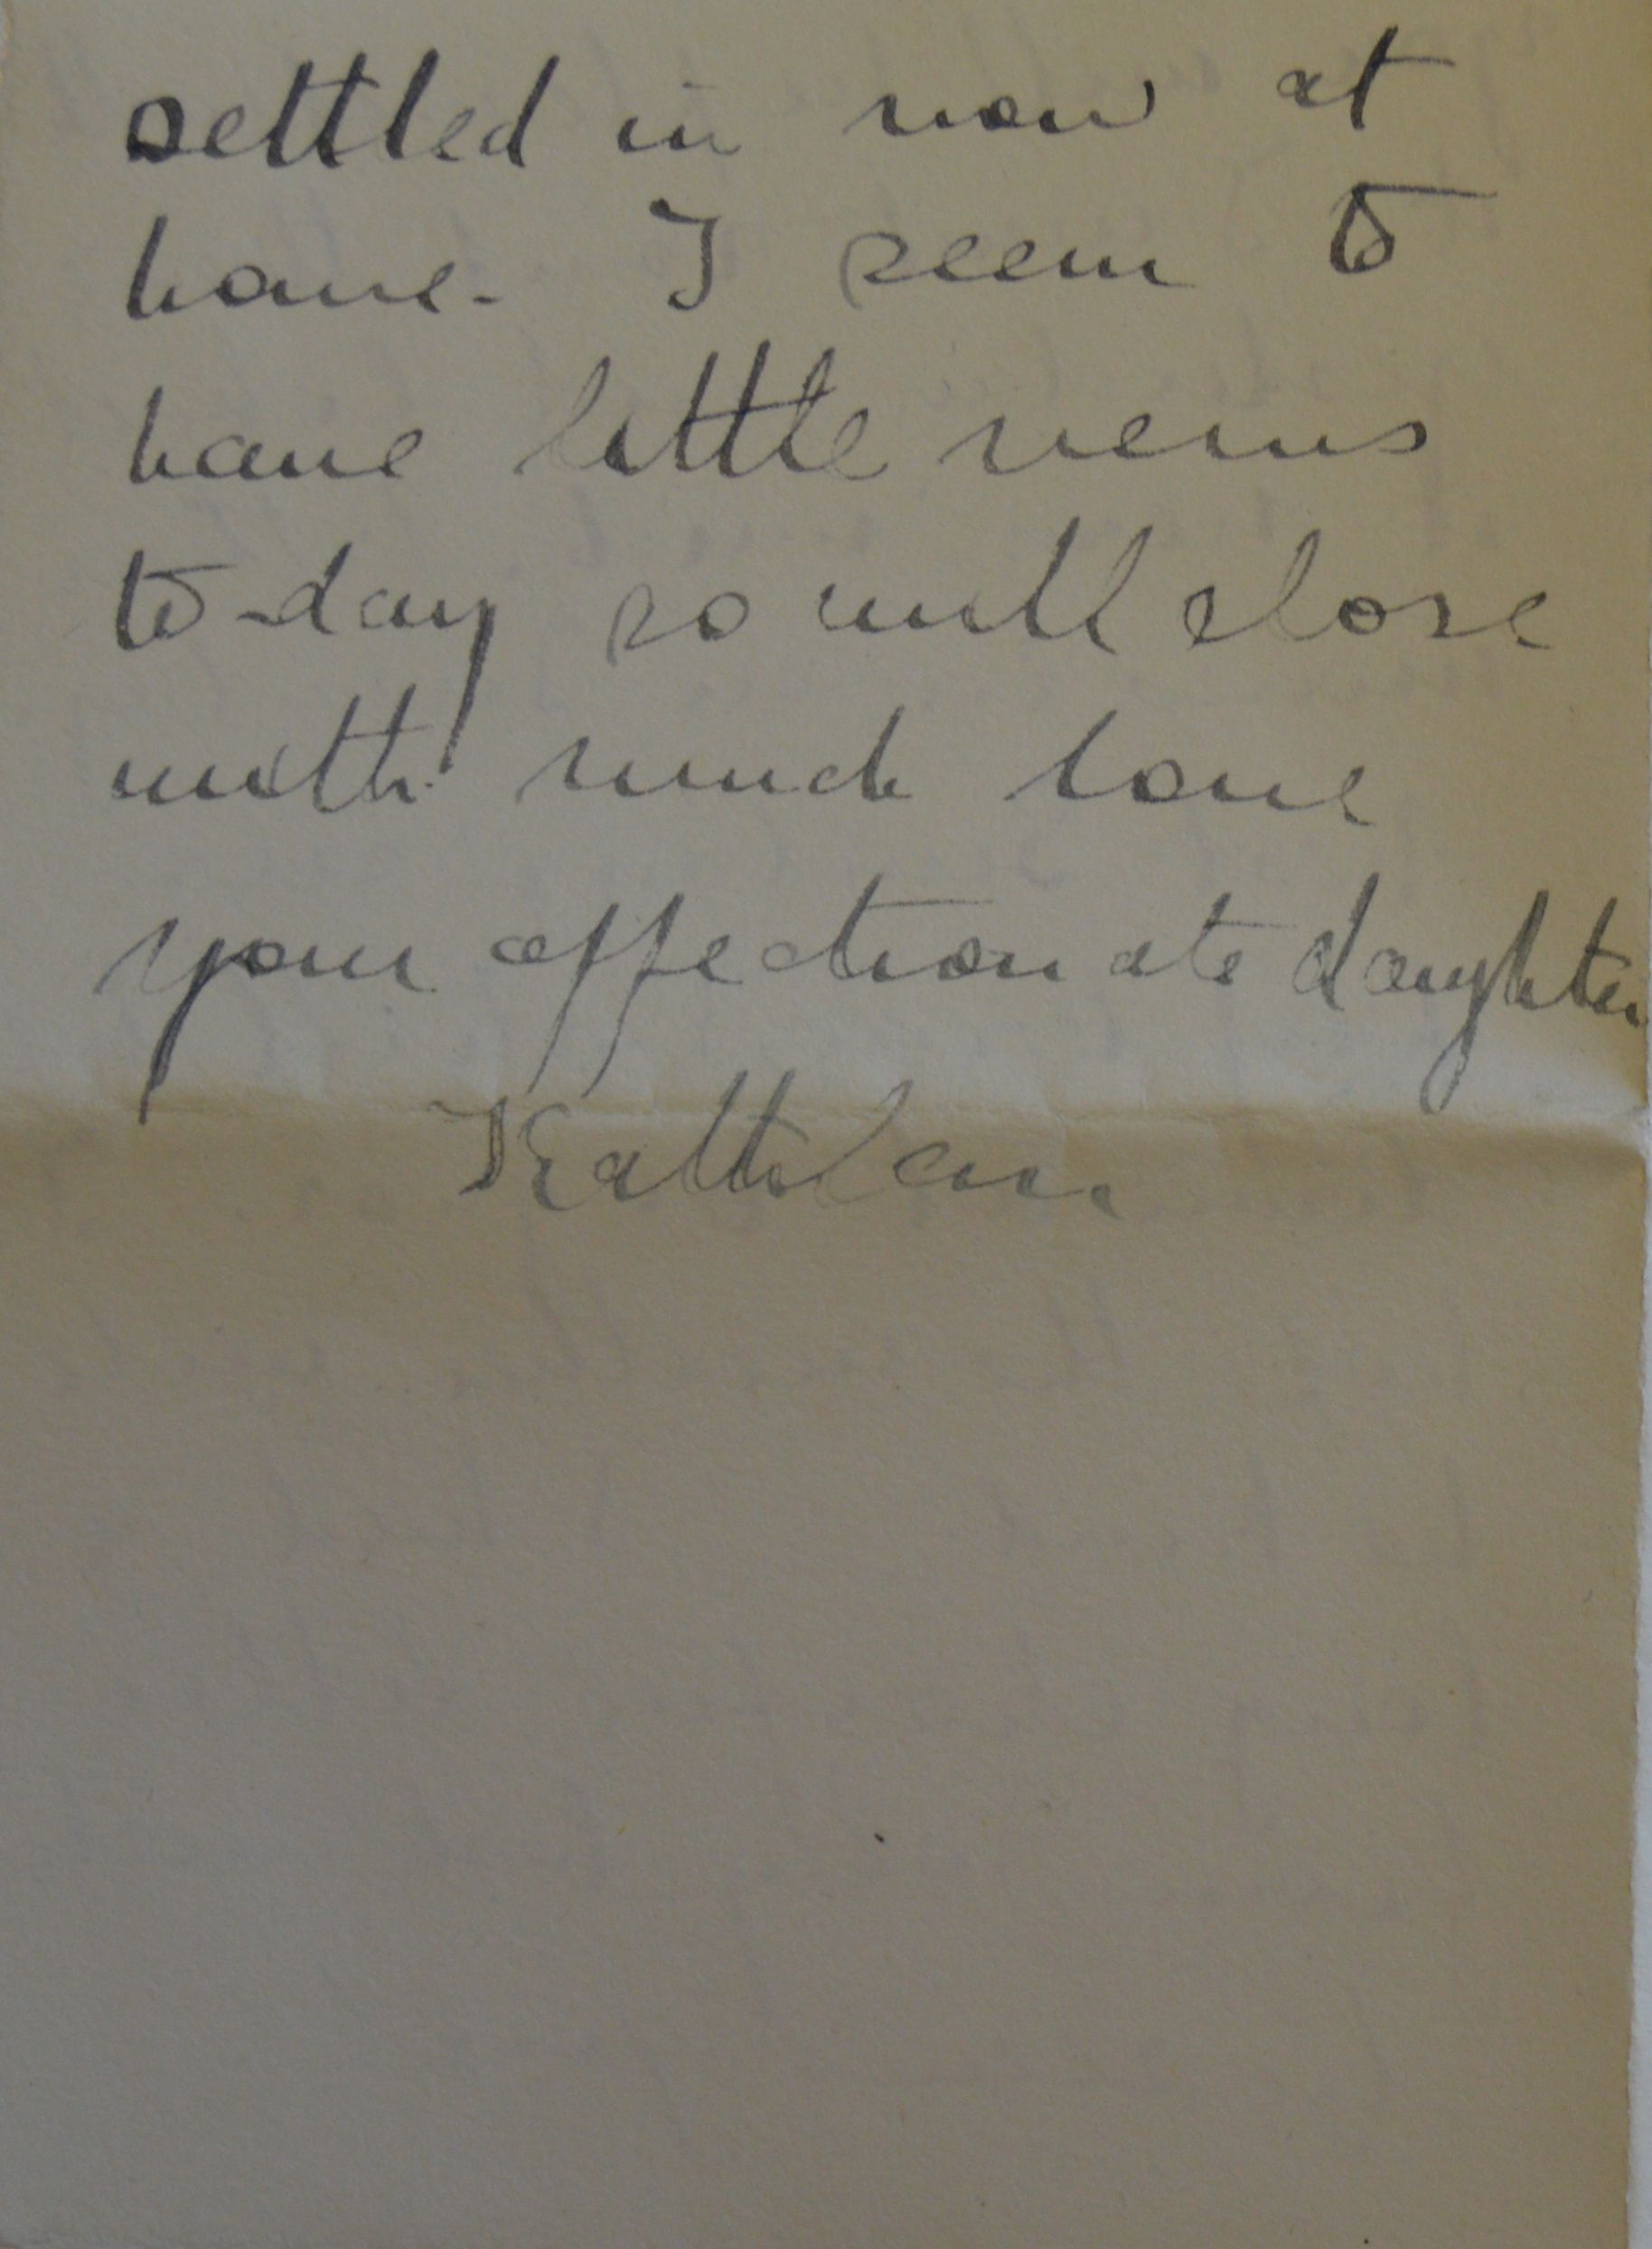 settled in now at
home. I seem to
have little news
to-day so will close
with much love
your affectionate daughter
Kathleen